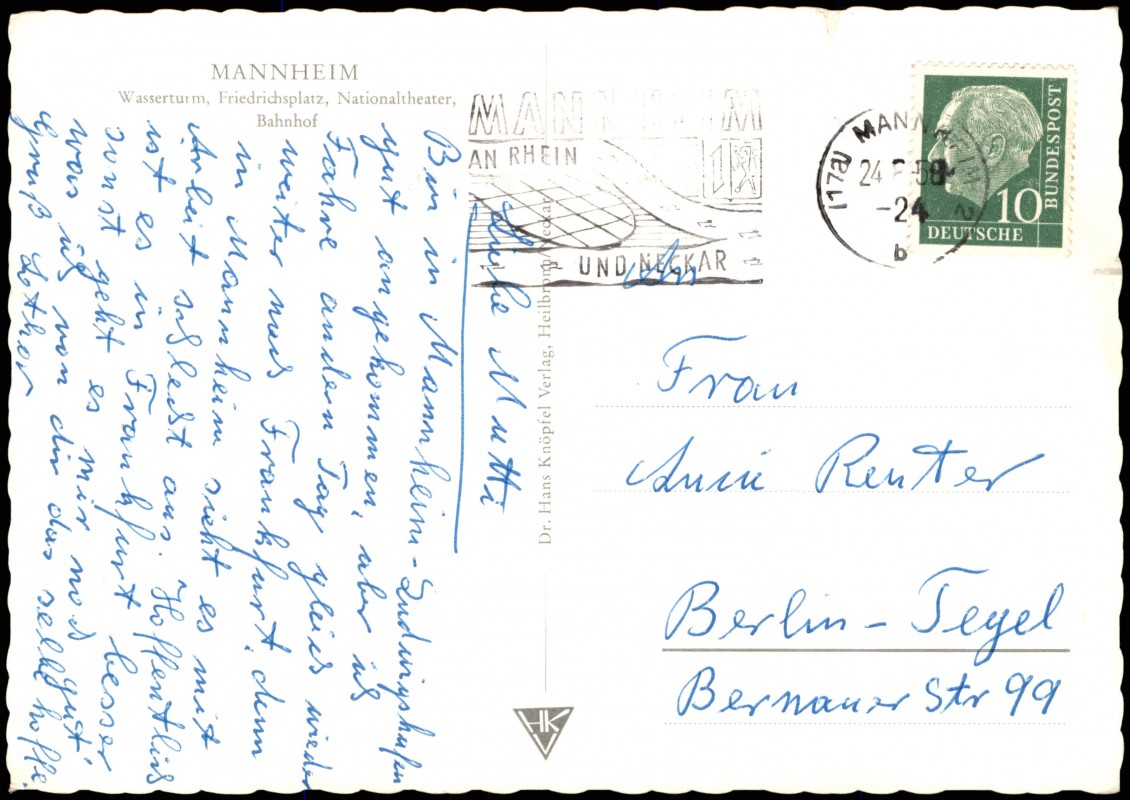 MANNHEIM
Wasserturm, Friedrichsplatz, Nationaltheater,
Bahnhof
Liebe Mutti
Bin in Mannheim-Ludwigshafen
gut angekommen, aber ich
Fahre andern Tag gleich wieder
weiter nach Frankfurt, denn
in Mannheim sieht es mit
Arbeit schlecht aus. Hoffentlich
ist es in Frankfurt besser
sonst geht es mir noch gut,
was ich von dir das selbe hoffe
Gruß Lothar
Dr. Hans Knöpfel Verlag, Heilbronn/Neckar
HK
MANNHEIM
AN RHEIN
UND NECKAR
(17a) MANNHEIM 2
24. .58
-24
b
10
DEUTSCHE
BUNDESPOST
An
Frau
Anni Renter
Berlin-Tegel
Bernauer Str 99